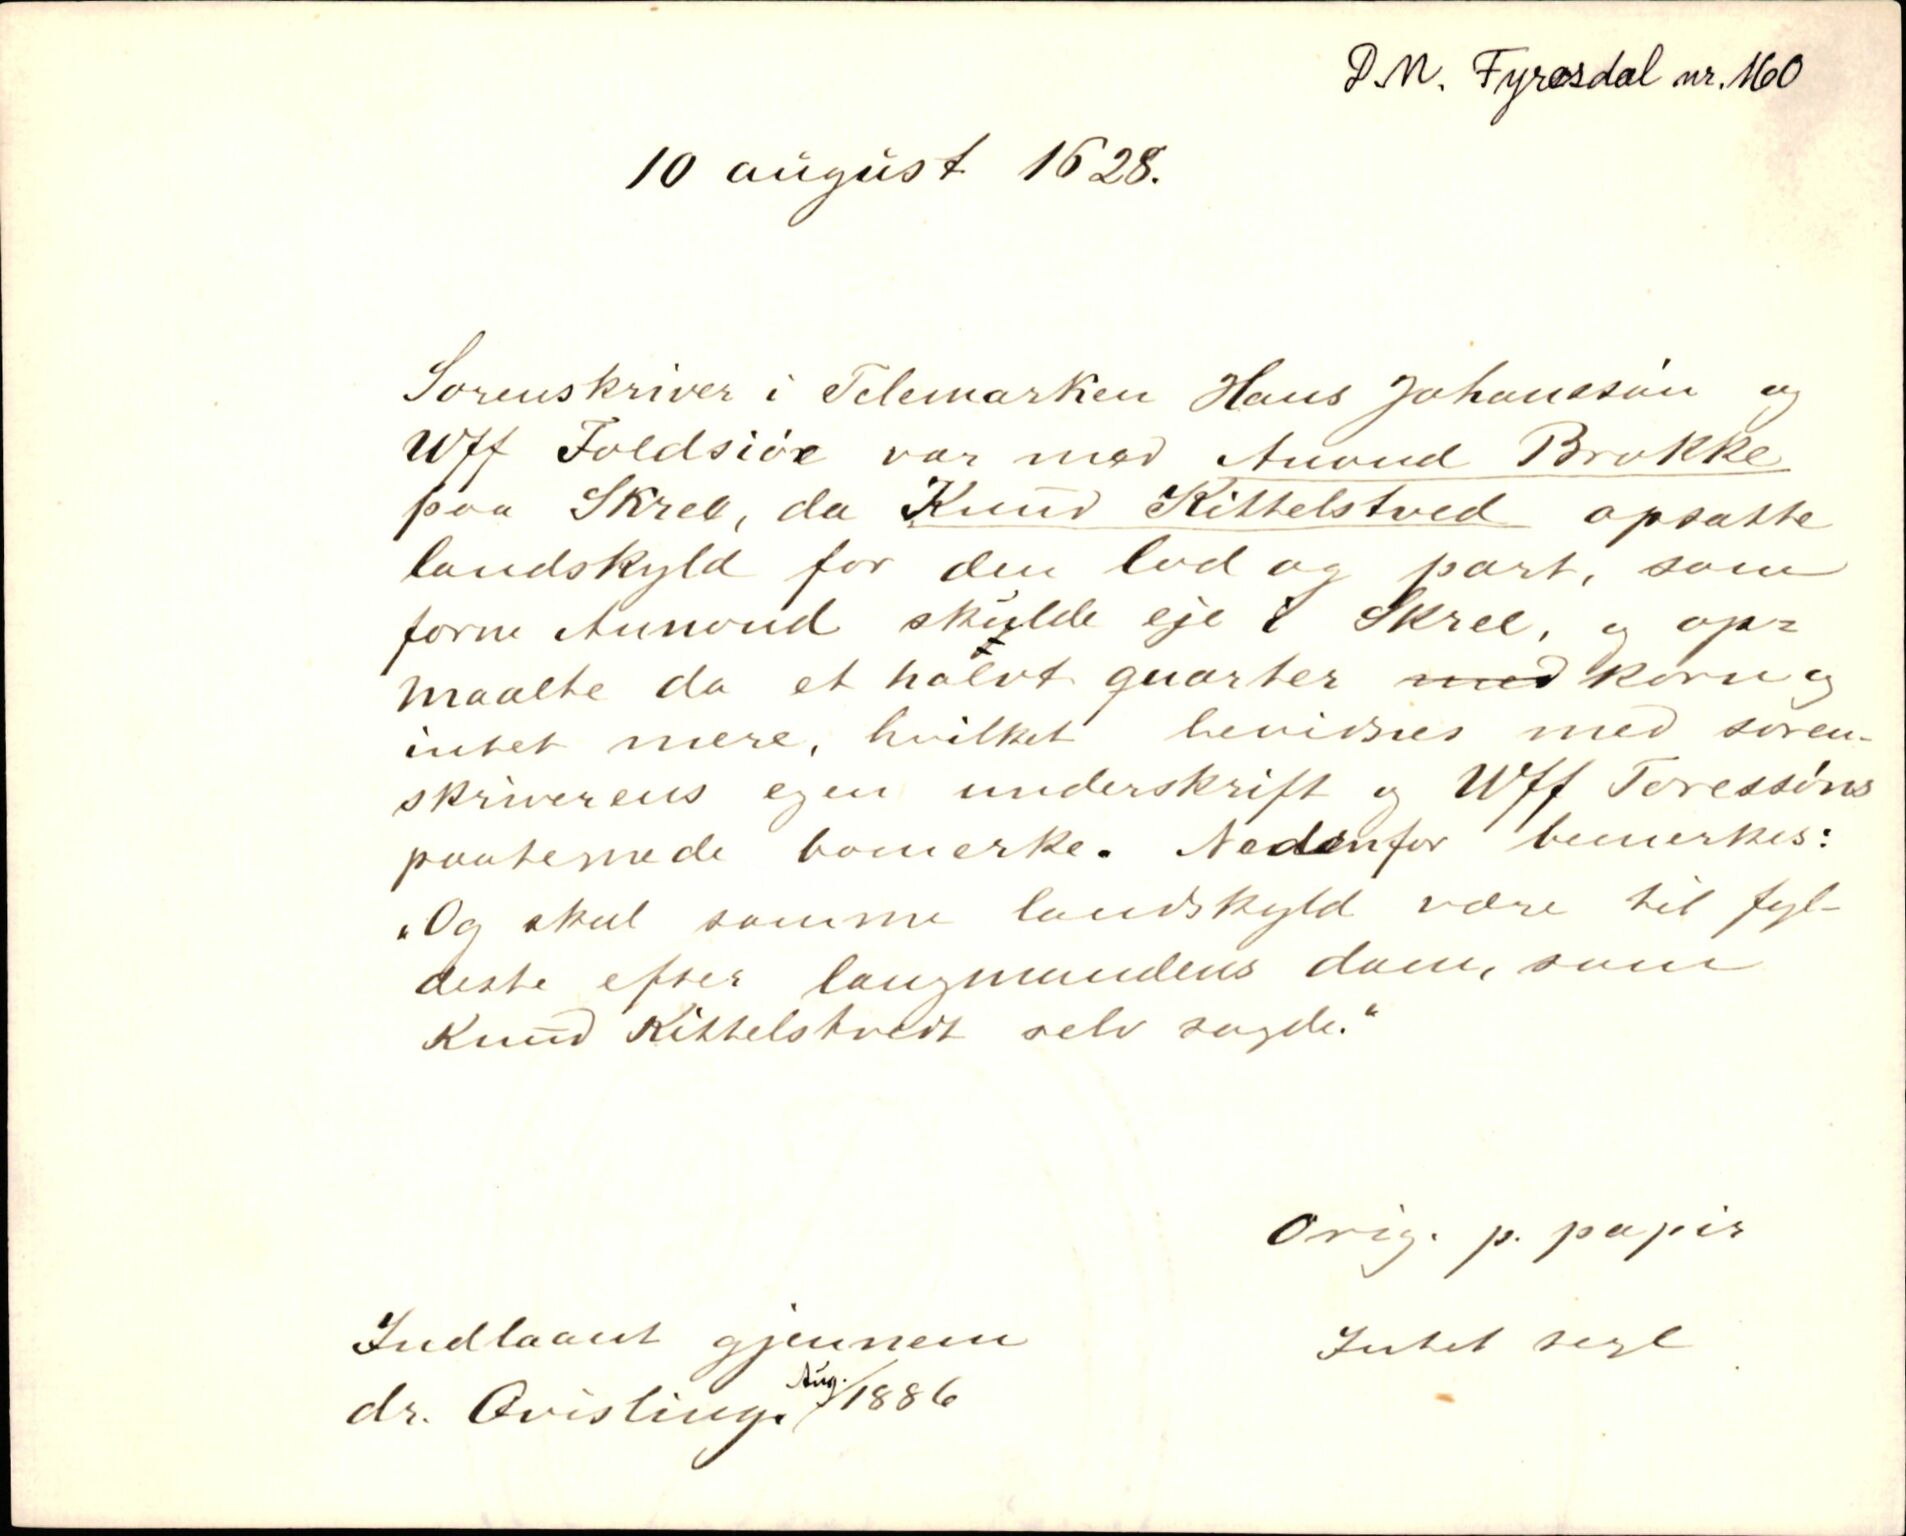 D.N. Fyresdal nr. 160
10 august 1628.
Sorenskriver i Telemarken Hans Johanssön og
Wff Foldsiöe var med Anond Brokke
paa Skree, da Knud Kittelstved opsatte
landskyld for den lod og part, som
forne Annond skulde eje i Skree, og op=
maalte da et halvt quarter korn og
intet mere, hvilket bevidnes med soren-
skriverens egen underskrift og Wff Toressöns
paategnede bomerke. Nedenfor bemerkes:
„Og skal samme landskyld være til fyl-
deste efter laugmandens dom, som
Knud Kittelstvedt selv sagde."
Orig. p. papir
Indlaant gjennem
Intet segl
dr. Qvisling. Aug. /1886